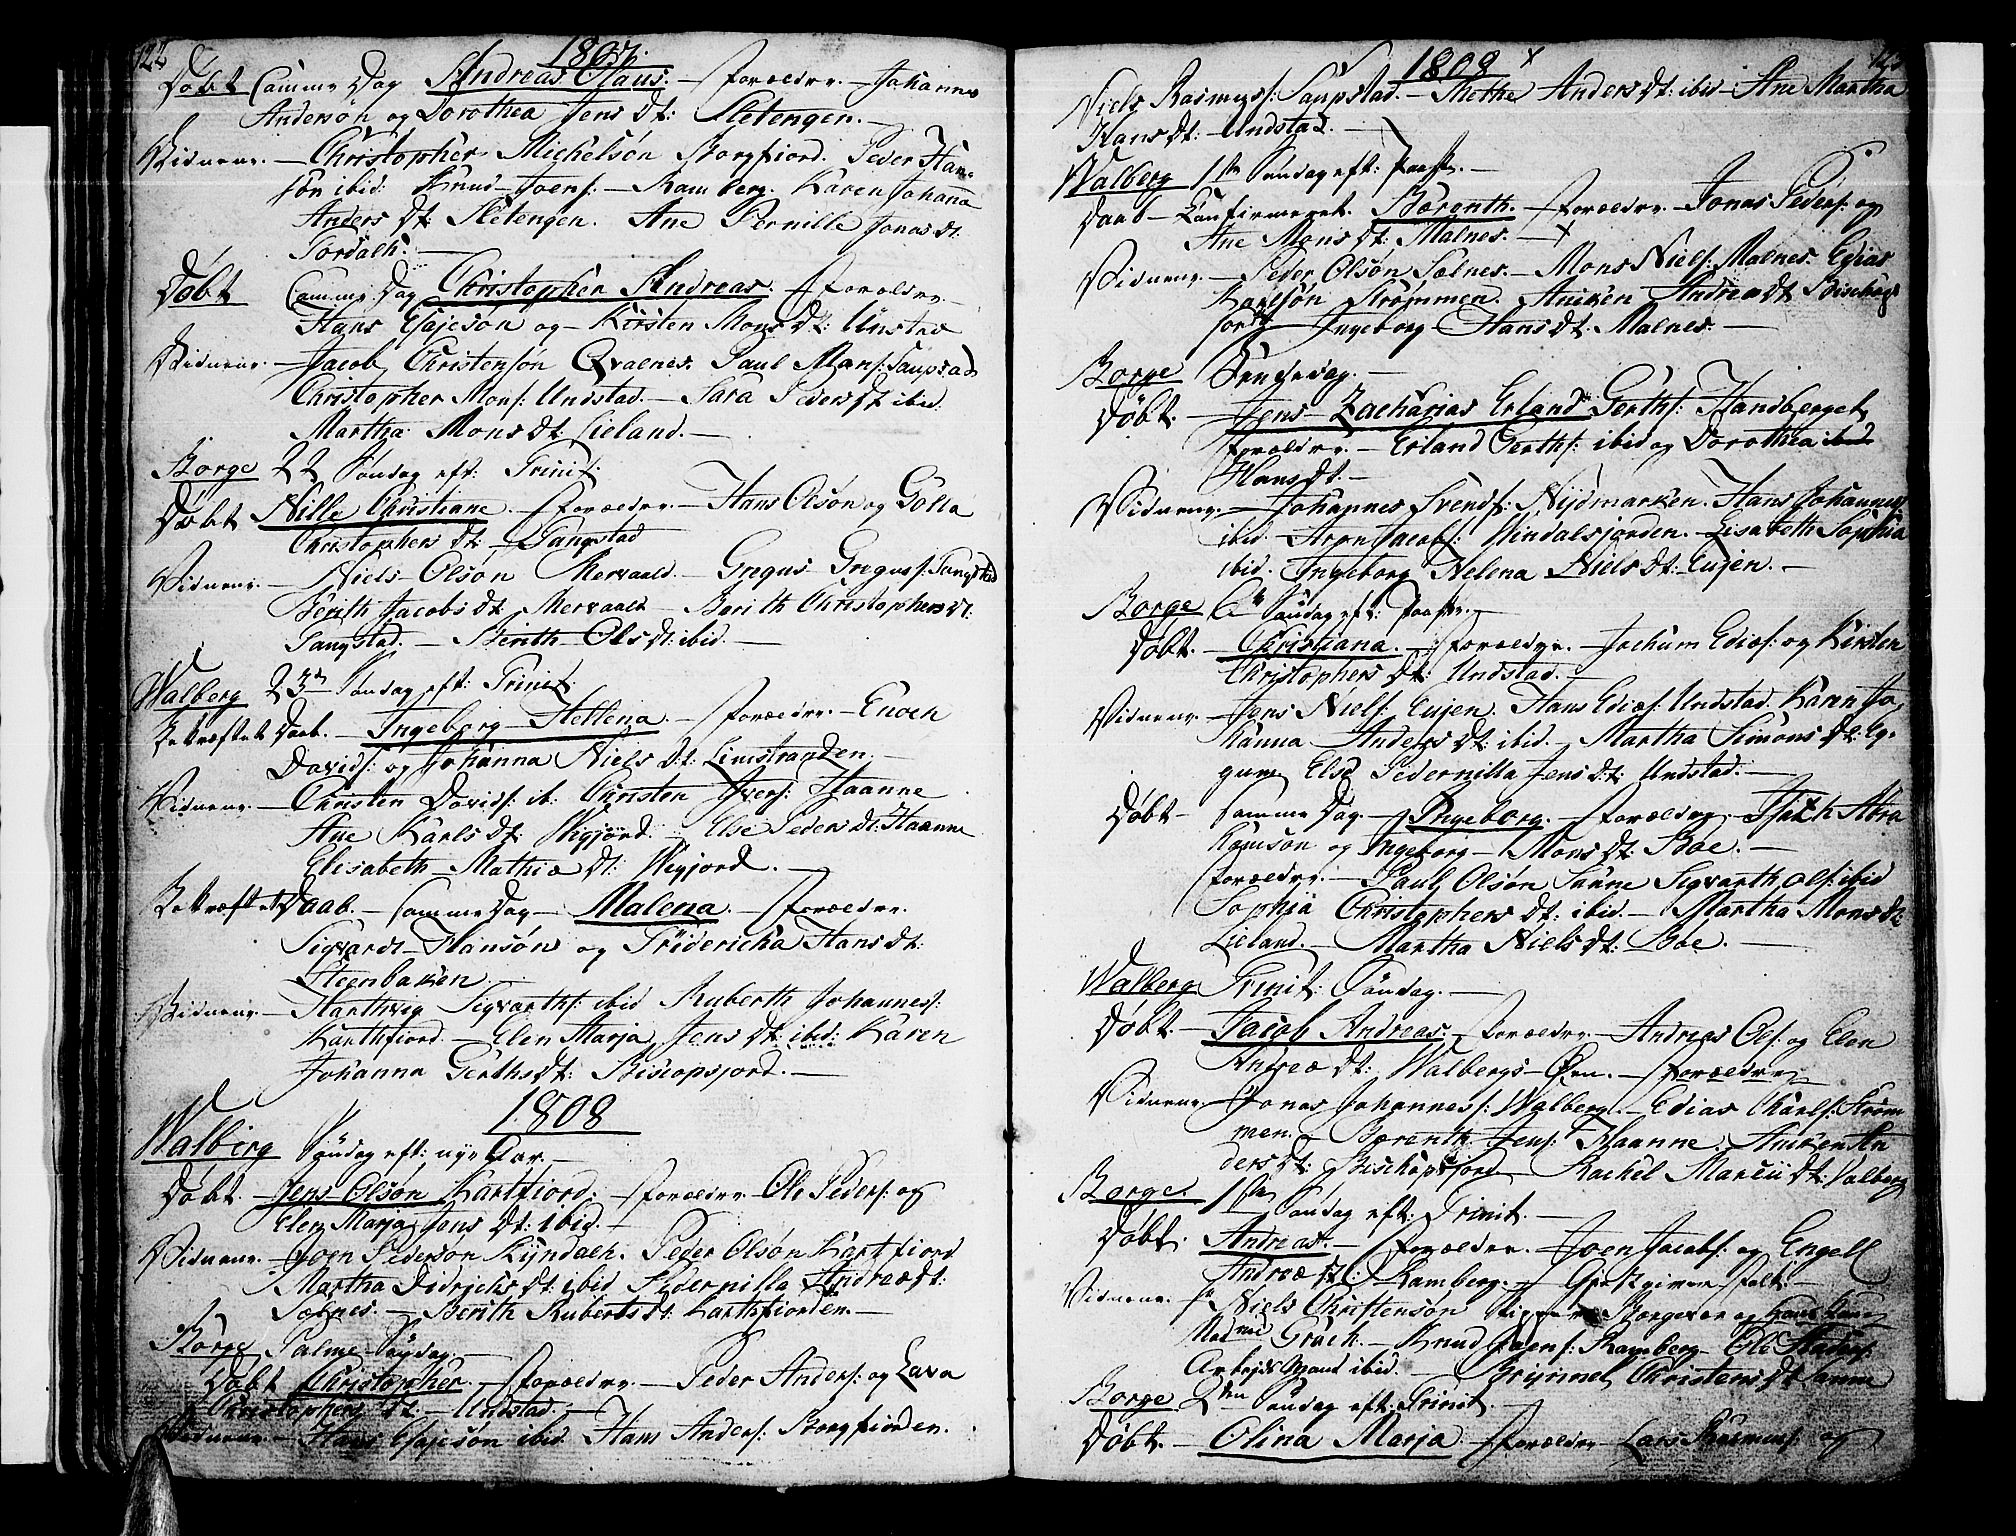 122
1807.
Døbt Samme Dag Andreas Claus. – Forældre – Johannes
Andersøn og Dorothea Jens Dt: Sletengen. –
Vidnene. – Christopher Michelsøn Borgfiord. Peder Han-
søn ibid: Knud Joens: – Ramberg. Karen Johanna
Anders Dt: Sletengen. Ane Pernille Jonas Dt:
Døbt Samme Dag Christopher Andreas. Forældre. –
Hans Esajesøn og – Kirsten Mons Dt: Unstad
Vidnene. – Jacob Christensøn Qvalnes. Paul Mons: Saupstad
Christopher Mons: Undstad. – Sara Peders Dt ibid.
Martha Mons Dt: Lieland. –
Borge 22 Søndag eft: Trinit:
Døbt Nille Christiane. – Forældre. – Hans Olsøn og Gølla
Christophers Dt: – Tangstad
Vidnene. – Niels Olsøn Mervaald. – Gregus Gregus: Tangstad
Berith Jacobs Dt: Mervaald – Berith Christophers Dt:
Tangstad. – Berith Ols Dt: ibid. –
Walberg 23de Søndag eft: Trinit:
Bekræftet Daab. – Ingeborg Hellena. – Forældre. – Enoch
Davids: og Johanna Niels Dt: Limstranden –
Vidnene. – Christen Davids: ib: Christen Ivers: Haanne
Ane Karls Dt: Hegjord. – Else Peders Dt: Haanne
Elisabeth Mathiæ Dt: Hegjord. –
Bekræftet Daab. – Samme Dag – Malena. – Forældre.
Sigvardt Hansøn og Fridericka Hans Dt:
Steenbaken. –
Vidnene. – Harthvig Sigvarths: ibid Ruberth Johannes:
Karthfiord. – Elen Marja Jens Dt: ibid: Karen
Johanna Gerths Dt: Biscopsjord. –
1808
Walberg Søndag eft: nye Aar. –
Døbt. – Jens Olsøn Kartfiord: – Forældre Ole Peders: og
Elen Marja Jens Dt: ibid. –
Vidnene. – Joen Pedersøn Peder Olsøn Kartfiord
Martha Didrichs Dt: ibid Pedernilla Andreæ Dt:
Sølnes. – Berith Ruberts Dt: Karthfiorden. –
Borge Palme Søndag. –
Døbt Christopher. – Forældre. – Peder Anders: og Lava
Christophers Dt: – Undstad. –
Vidnene. – Hans Esajesøn ibid. Hans Anders: Borgfiorden.
1808
Niels Rasmus: Saupstad. – Methe Anders Dt: ibid – Ane Martha
Hans Dt: Undstad. –
Walberg 1ste Søndag eft: Paaske. –
Daab – Confirmeret. Berenth. – Forældre. – Jonas Peders: og
Ane Mons Dt: Malnes. –
Vidnene – Peder Olsøn Sølnes. – Mons Niels: Malnes. Edias
Karlsøn Strømmen. Anicken Andreæ Dt: Biscops
fiord Ingeborg Hans Dt: Malnes. –
Borge Bededag. –
Døbt. – Jens Zacharias Erland Gerths: Handberget
Forældre. – Erland Gerths: ibid og Dorothea ibid
Hans Dt: –
Vidnene. – Johannes Svends: Nijdmarken. Hans Johannes:
ibid. Aron Jacobs: Hindalsjorden. Lisabeth Sophia
ibid. Ingeborg Helena Niels Dt: Eujen. –
Borge 6te Søndag eft: Paaske. –
Døbt. – Christiana. – Forældre. – Jochum Edias: og Kirsten
Christophers Dt: Undstad. –
Vidnene – Jens Niels: Eujen. Hans Edias: Undstad. Karen Jo,
hanna Anders Dt: ibid. – Martha Simons Dt: Eg-
gum, Else Pedernilla Jens Dt: Undstad. –
Døbt – Samme Dag. – Ingeborg. – Forældre – Isach Abra
hamsøn og Ingeborg – Mons Dt: Boe. –
Forældre. – Paul Olsøn Sanne Sigvarth ols: ibid
Sophia Christophers Dt: ibid. – Martha Mons Dt:
Lieland. – Martha Niels Dt: Boe. –
Walberg Trinit: Søndag. –
Døbt. – Jacob Andreas. – Forældre – Andreas Ols: og Elen
Andreæ Dt: Walbergs-Øen. – Forældre
Vidnene. Jonas Johannes: Walberg. – Edias Charls: Strøm
men. – Berenth Jens: Haanne. Anicken An
ders Dt: Bischopsjord – Rachel Marcii Dt: Valberg
Borge. 1ste Søndag eft: Trinit. –
Døbt. Andreas. – Forældre. – Joen Jacobs: og Engell
Andreæ Dt: Ramberg. –
Vidnene. Niels Christensøn Borgevær og
Grack. – Knud Joens: Ramberg – Ole
Arbejds Mand ibid. – Brynnel Christens Dt Sanne
Borge 2den Søndag eft: Trinit. –
Døbt. – Olina Marja. Forældre – Lars Rasmus: og